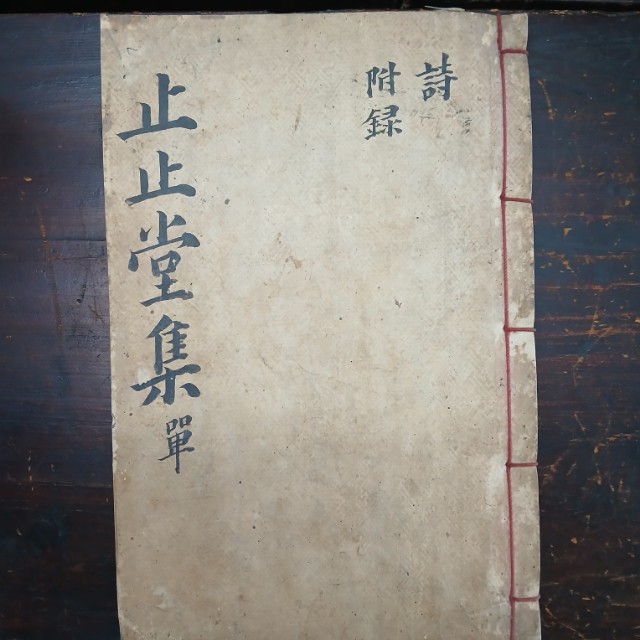 詩
附録
止止堂集 單